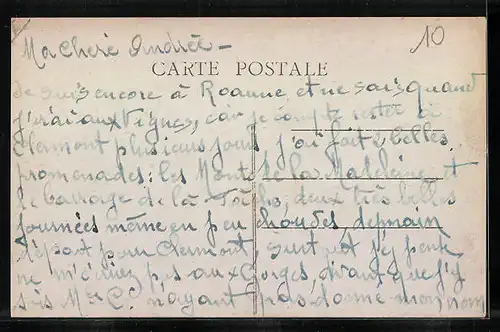 Ma chère Andrée -
10
CARTE POSTALE
Je suis encore à Roanne et ne sais quand
j'irai aux Vignes, car je compte rester à
Clermont plusieurs jours. j'ai fait 2 belles
promenades: les Monts de la Madeleine et
le barrage de la, deux très belles
journées même un peu chaudes, demain
départ pour Clermont surtout
ne m' pas aux Gorges, avant que j'y
sois Mme C. n'ayant pas donné mon nom